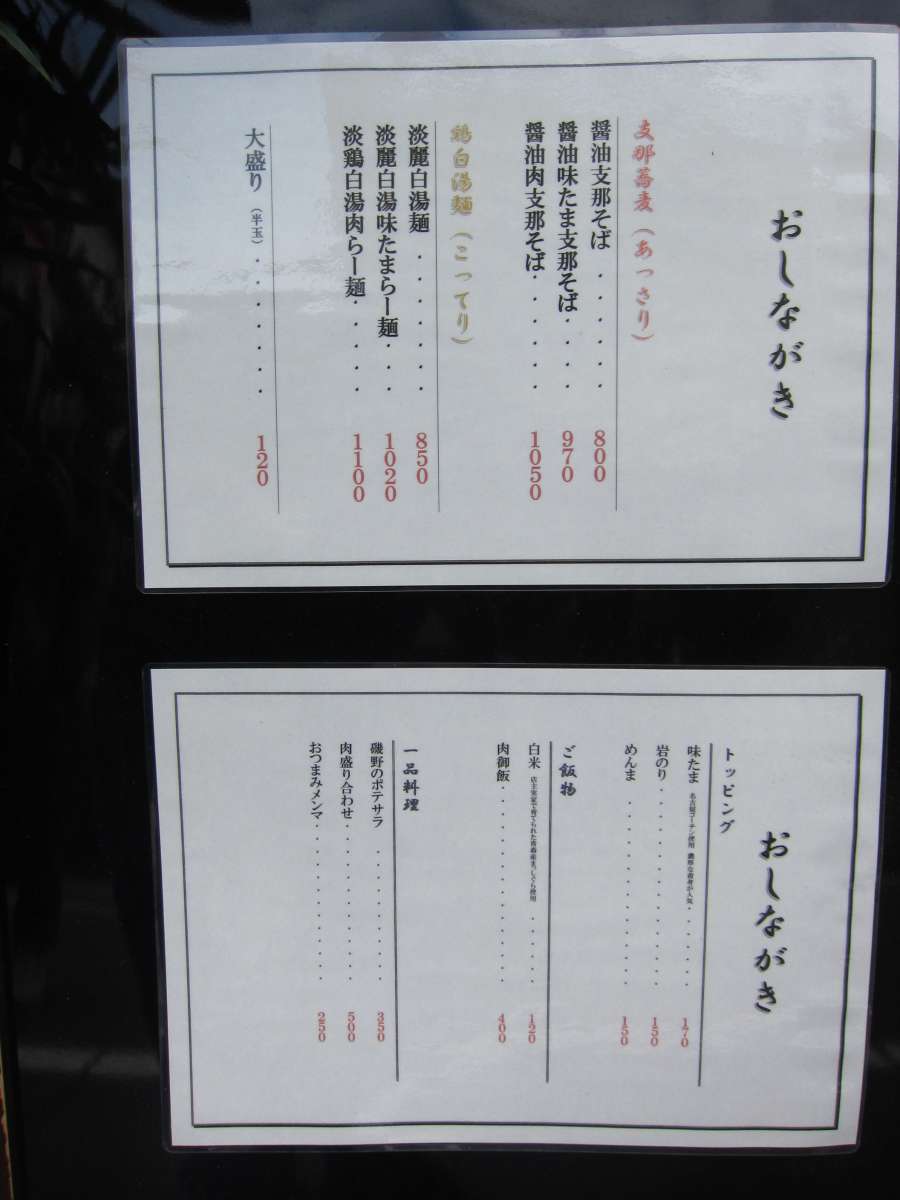 おしながき
支那蕎麦（あっさり）
醤油支那そば・・・・・800
醤油味たま支那そば・・・970
醤油肉支那そば・・・・・1050
鶏白湯麺（こってり）
淡麗白湯麺・・・・・・850
淡麗白湯味たまらー麺・・1020
淡鶏白湯肉らー麺・・・・1100
大盛り（半玉）・・・・・・・120
おしながき
トッピング
味たま 名古屋コーチン使用 濃厚な黄身が人気・・・・・170
岩のり・・・・・・・・・・・150
めんま・・・・・・・・・・150
ご飯物
白米 店主実家で育てられた青森産まっしぐら使用・・・・・120
肉御飯・・・・・・・・・・・400
一品料理
磯野のポテサラ・・・・・・・・350
肉盛り合わせ・・・・・・・・・500
おつまみメンマ・・・・・・・・・250